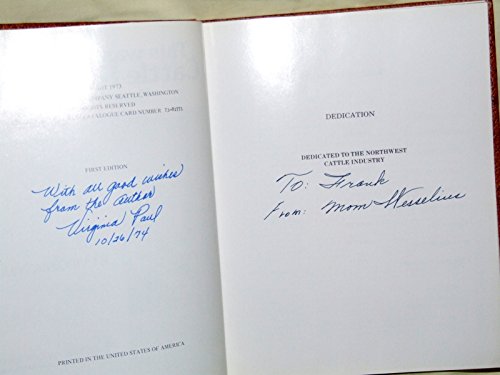 1973
SEATTLE, WASHINGTON
RESERVED
CATALOGUE CARD NUMBER
FIRST EDITION
With all good wishes
from the author
Virginia Paul
10/26/74
PRINTED IN THE UNITED STATES OF AMERICA
DEDICATION
DEDICATED TO THE NORTHWEST
CATTLE INDUSTRY
To: Frank
From: Mom Wesselius